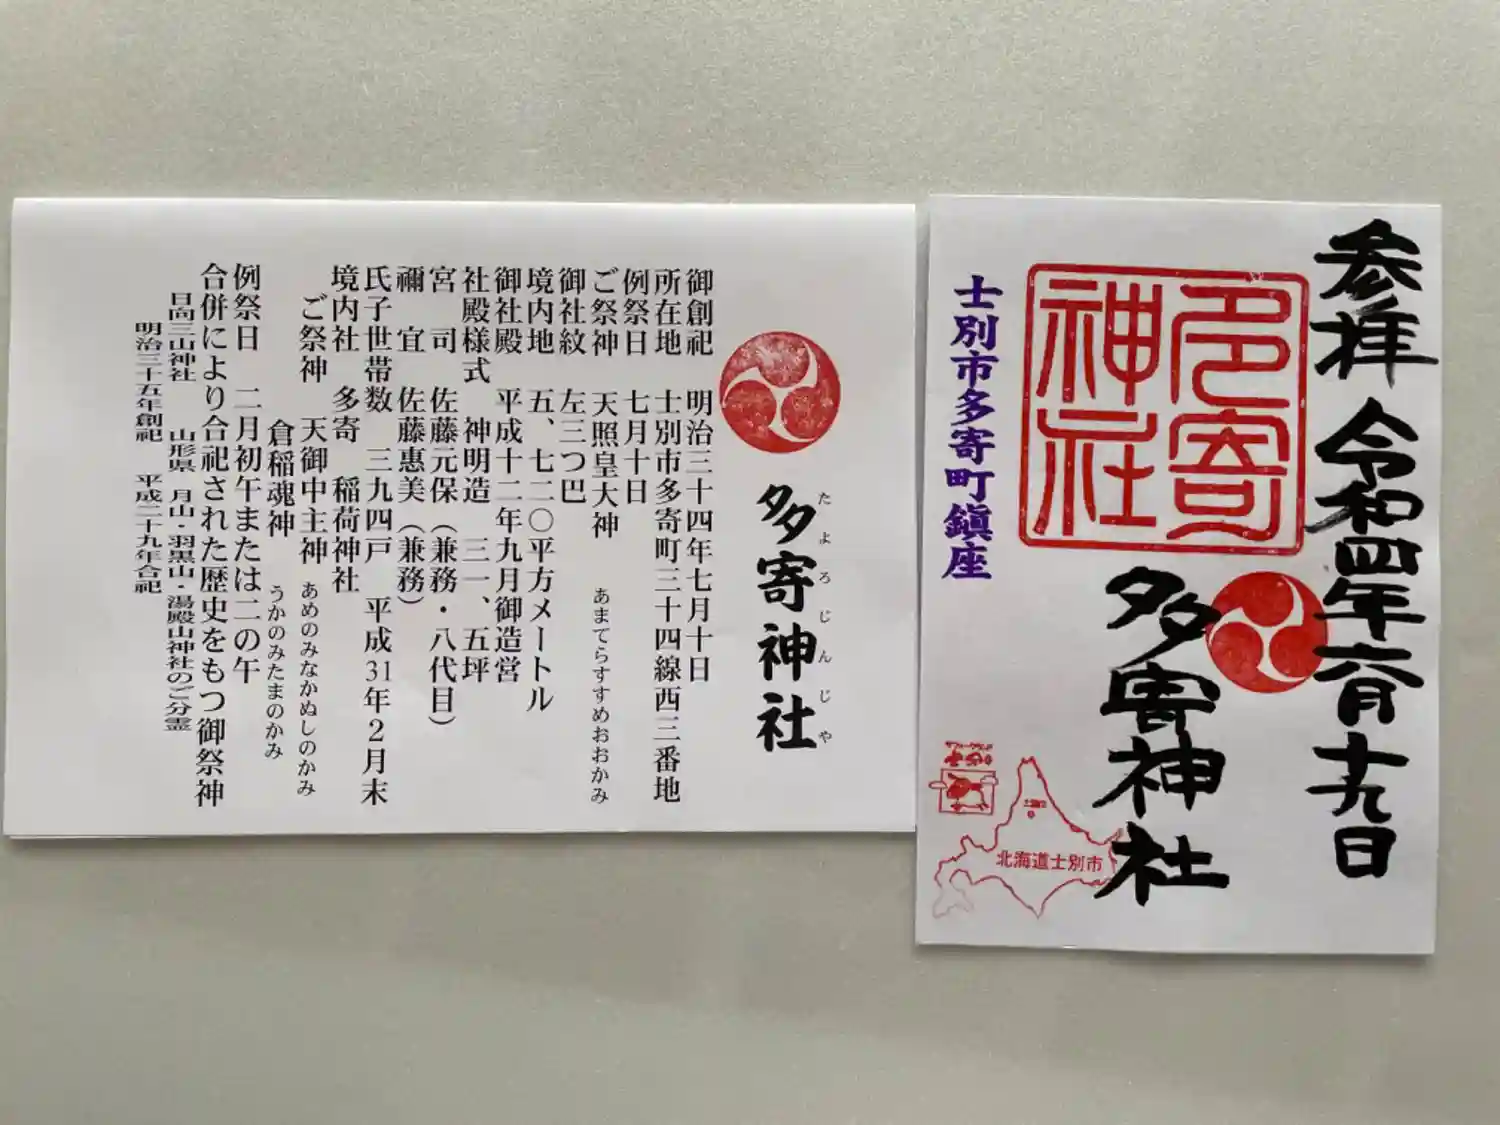 参拝 令和四年六月十九日
多寄神社
多寄
神社
士別市多寄町鎮座
北海道士別市
多寄神社
たよろじんじゃ
御創祀 明治三十四年七月十日
所在地 士別市多寄町三十四線西三番地
例祭日 七月十日
ご祭神 天照皇大神 あまてらすすめおおかみ
御社紋 左三つ巴
境内地 五、七二〇平方メートル
御社殿 平成十二年九月御造営
社殿様式 神明造 三一、五坪
宮 司 佐藤元保(兼務・八代目)
禰 宜 佐藤惠美(兼務)
氏子世帯数 三九四戸 平成31年2月末
境内社 多寄 稲荷神社
ご祭神 天御中主神 あめのみなかぬしのかみ
倉稲魂神 うかのみたまのかみ
例祭日 二月初午または二の午
合併により合祀された歴史をもつ御祭神
日向三山神社 山形県 月山・羽黒山・湯殿山神社のご分霊
明治三十五年創祀 平成二十九年合祀